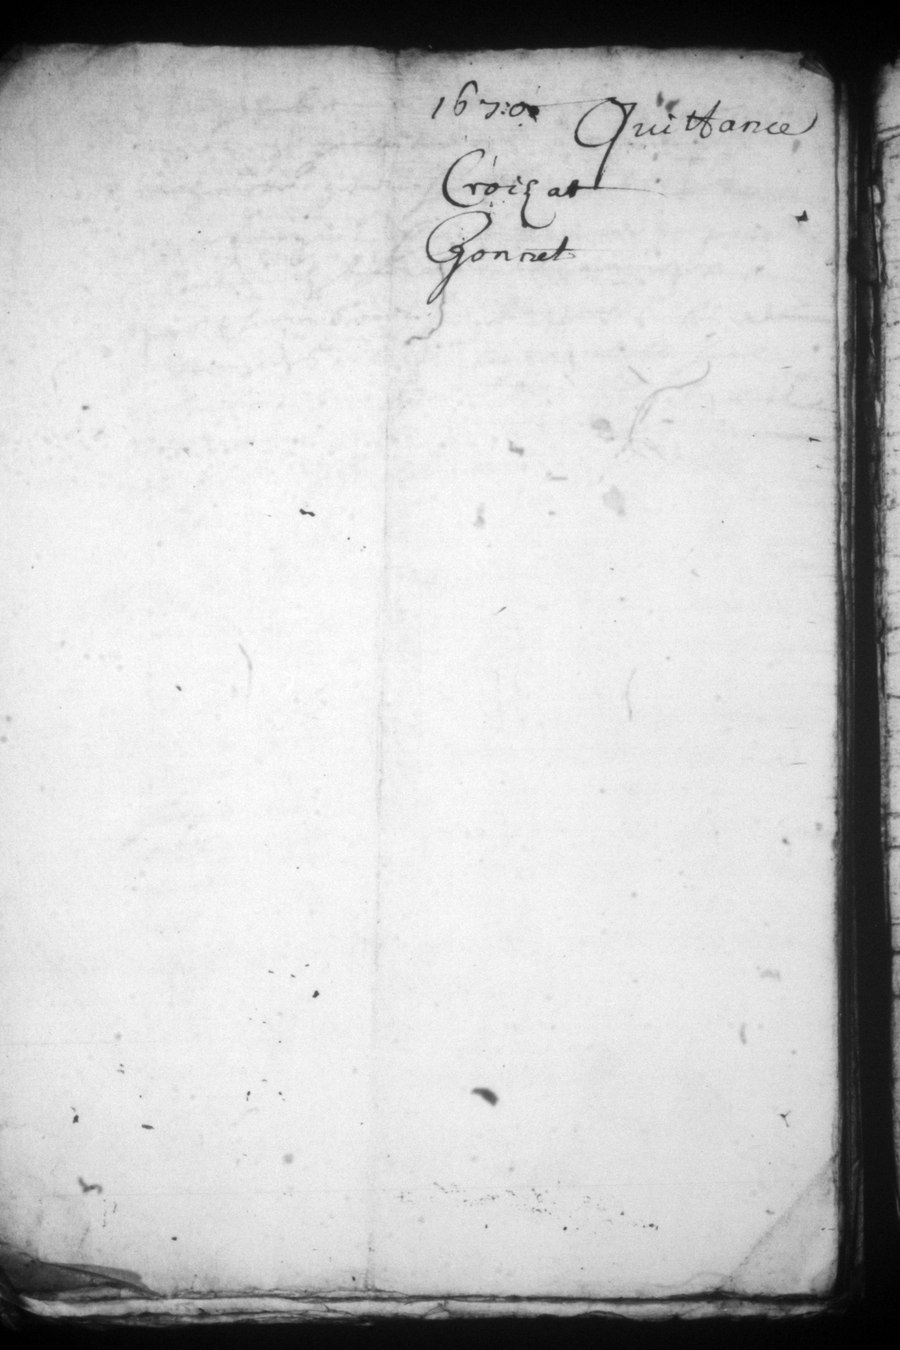 1670 Quittance
Croizat
Gonnet